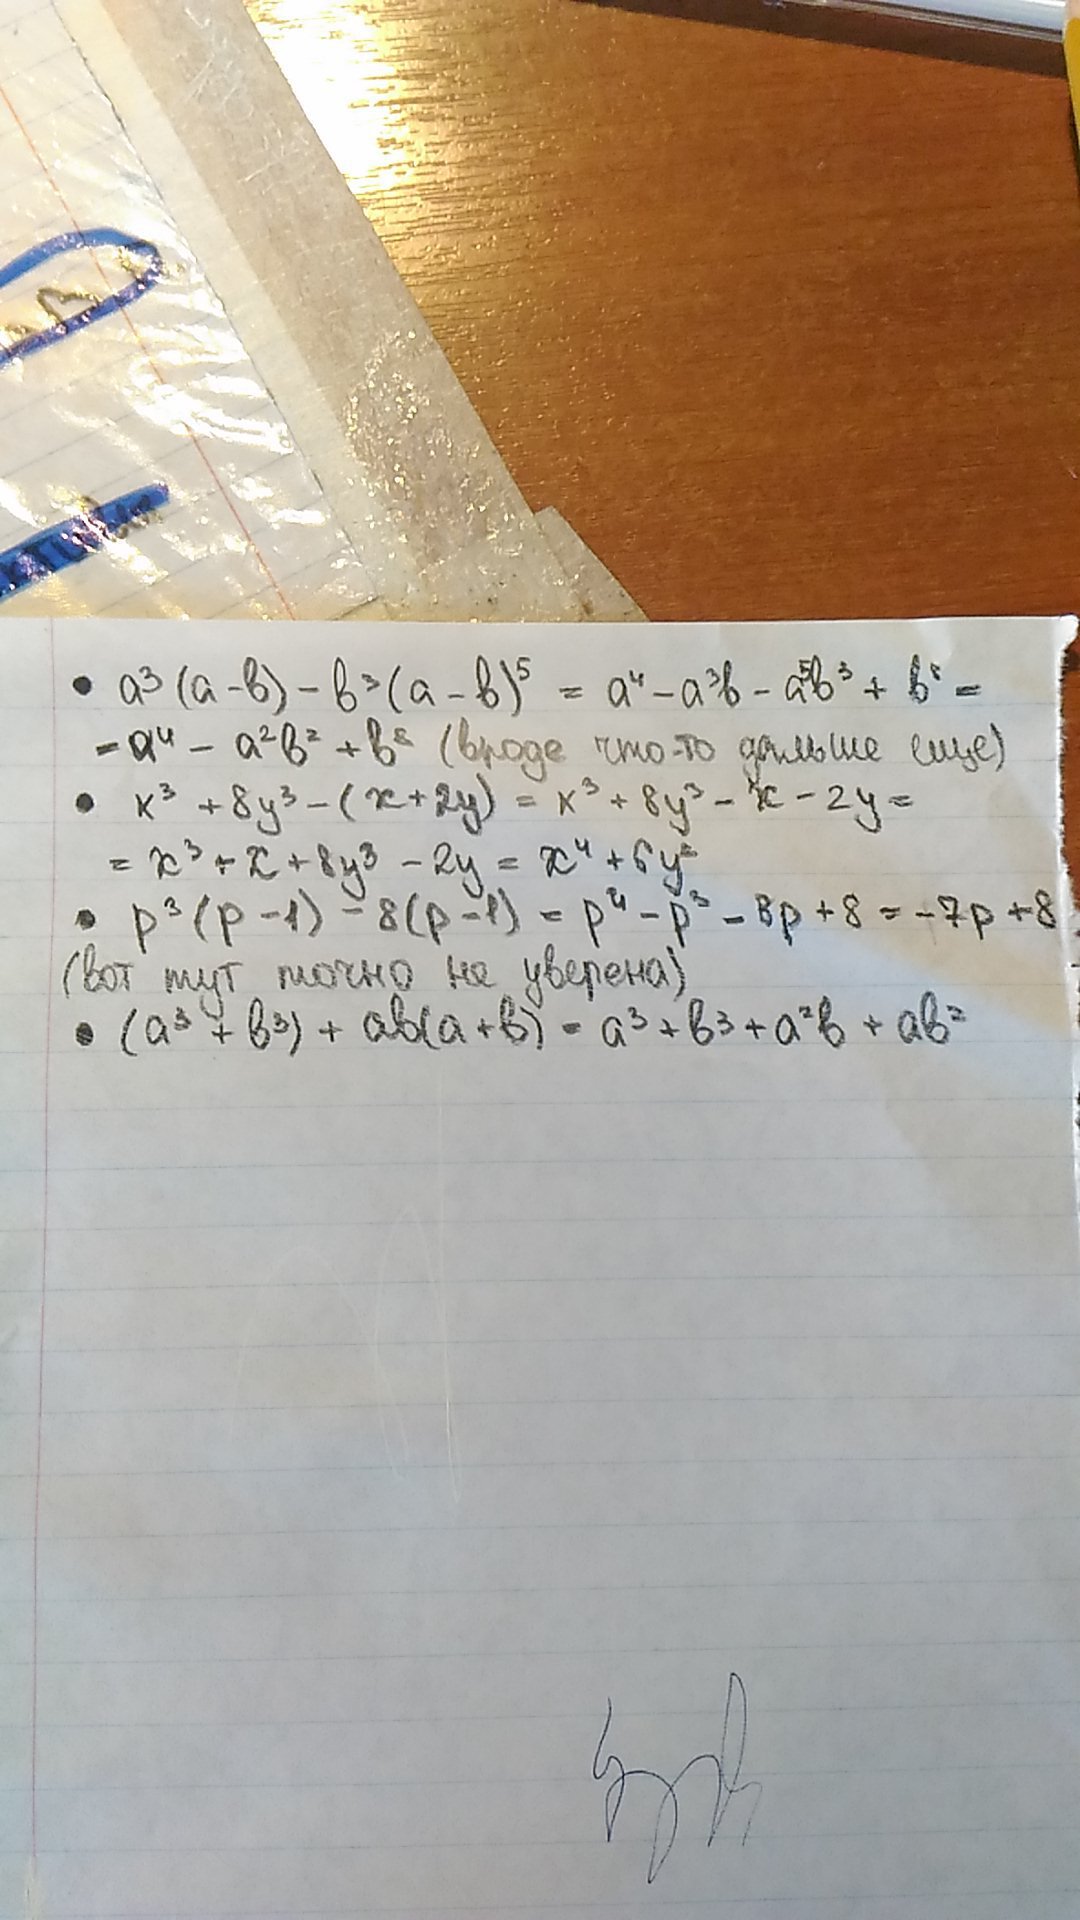 • a³(a-b) - b³(a-b)⁵ = a⁴ - a³b - a⁵b³ + b⁸ =
= a⁴ - a²b² + b⁸ (вроде что-то дальше еще)
• x³ + 8y³ - (x+2y) = x³ + 8y³ - x - 2y =
= x³ + x + 8y³ - 2y = x⁴ + 6y²
• p³(p-1) - 8(p-1) = p⁴ - p³ - 8p + 8 = -7p + 8
(вот тут точно не уверена)
• (a³ + b³) + ab(a+b) = a³ + b³ + a²b + ab²